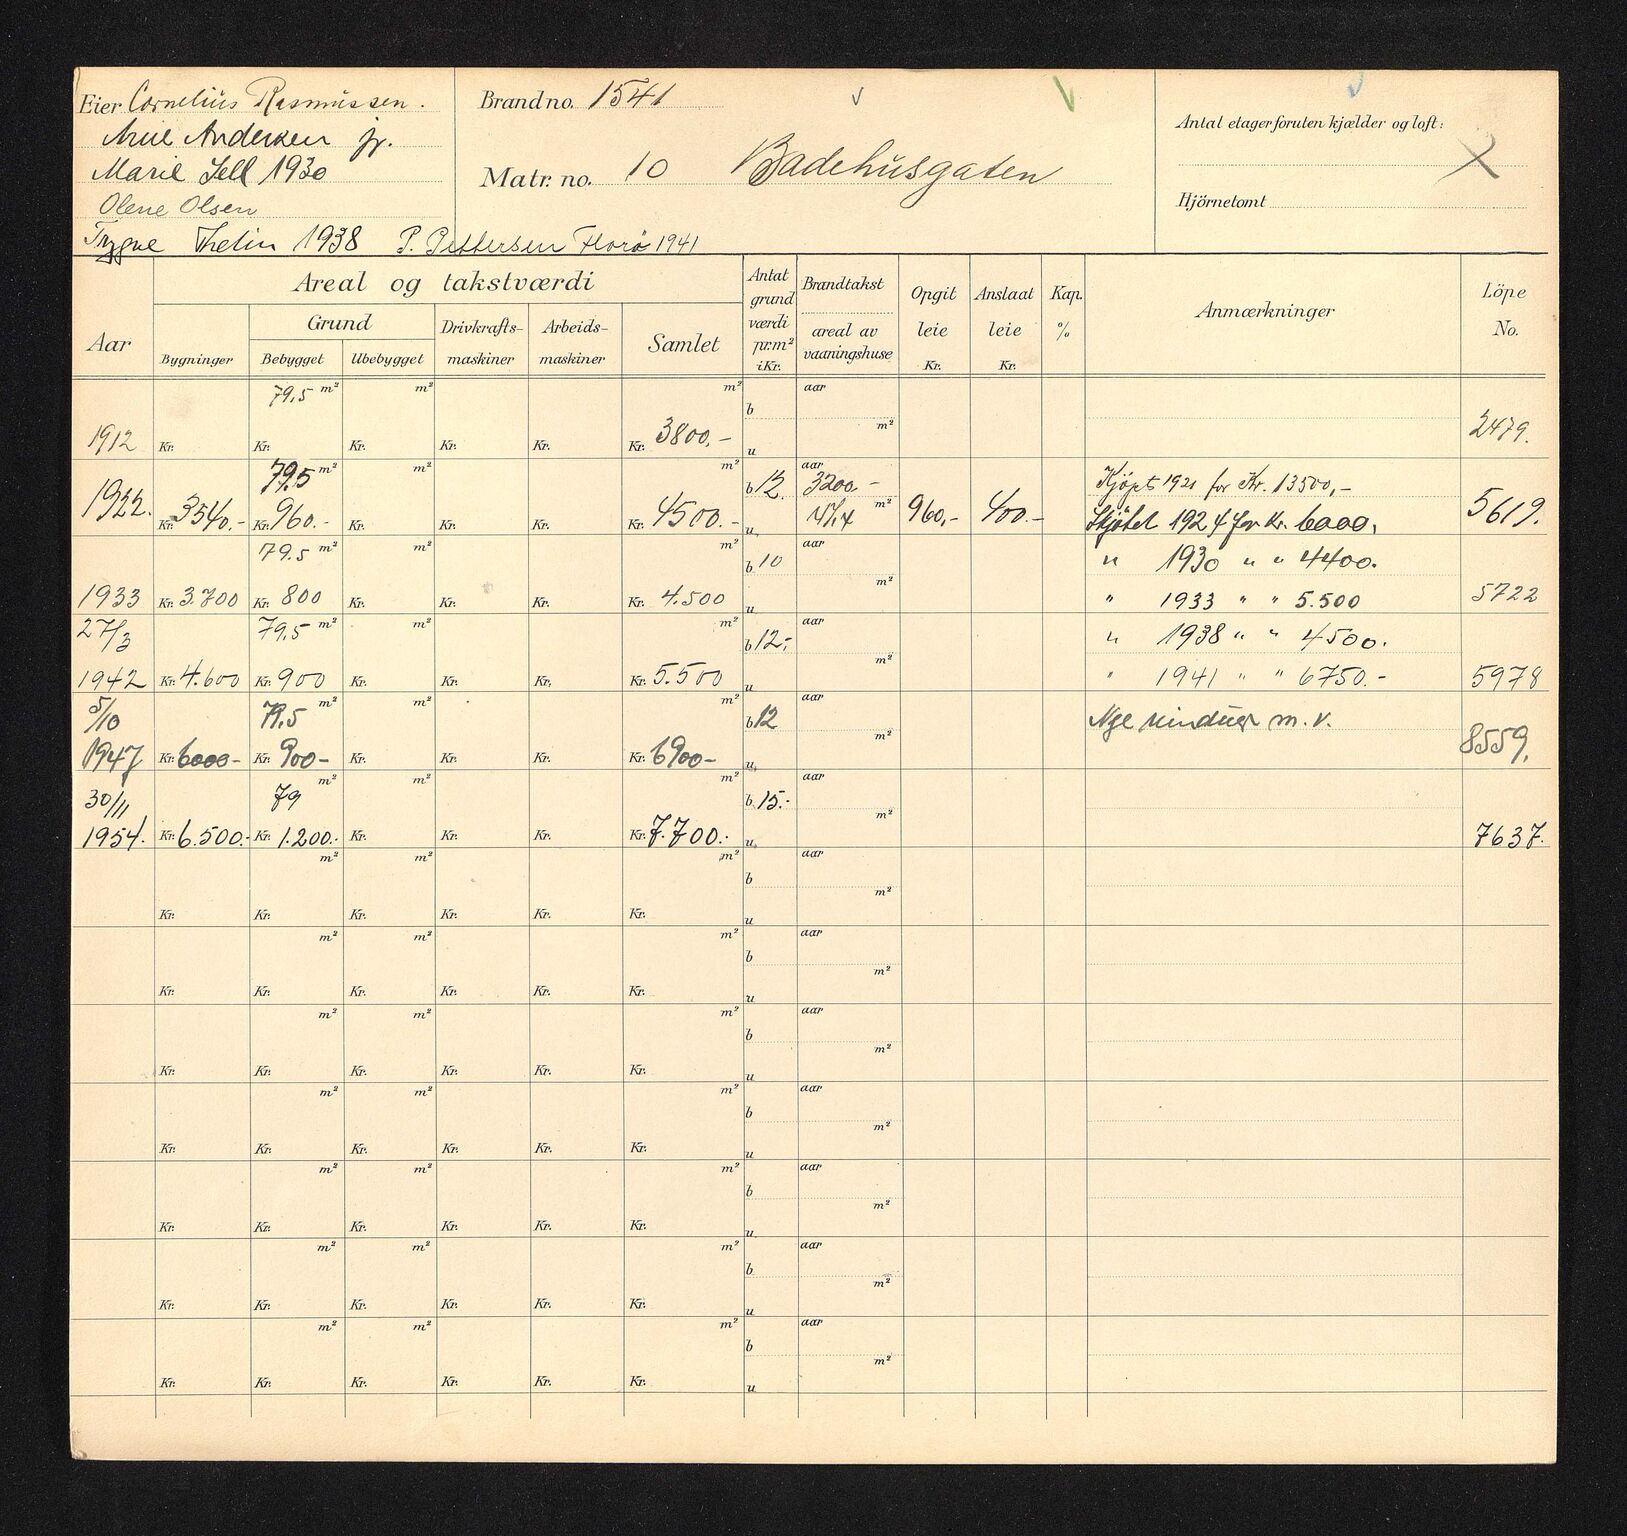 Eier Cornelius Rasmussen.
Arne Andersen jr.
Marie Sell 1930
Olene Olsen
Trygve Thelin 1938 P. Pettersen Florø 1941
Brand no. 1541
Matr. no. 10 Badehusgaten
Antal etager foruten kjælder og loft:
Hjörnetomt
Aar
Areal og takstværdi
Bygninger
Grund
Bebygget
Ubebygget
Drivkrafts-
maskiner
Arbeids-
maskiner
Samlet
Antat
grund
værdi
pr.m²
i Kr.
Brandtakst
areal av
vaaningshuse
Opgit
leie
Kr.
Anslaat
leie
Kr.
Kap.
%
Anmærkninger
Löpe
No.
79,5 m² m² m² b aar
1912 Kr. Kr. Kr. Kr. Kr. Kr. 3800,- u m² 2479.
79.5 m² m² m² b 12. aar 3200 - Kjøpt 1921 for Kr. 13500,-
1922. Kr. 3540.- Kr. 960.- Kr. Kr. Kr. Kr. 4500.- u m² 960,- 400.- Skjøtet 1924 for Kr. 6000, 5619.
79.5 m² m² m² b 10 aar " 1930 " " 4400.
1933 Kr. 3.700 Kr. 800 Kr. Kr. Kr. Kr. 4.500 u m² " 1933 " " 5.500 5722
27/3 79,5 m² m² m² b 12,- aar " 1938 " " 4500.
1942 Kr. 4.600 Kr. 900 Kr. Kr. Kr. Kr. 5.500 u m² " 1941 " " 6750.- 5978
5/10 79.5 m² m² m² b 12 aar Nye vinduer m. v.
1947 Kr. 6000- Kr. 900- Kr. Kr. Kr. Kr. 6900- u m² 8559.
30/11 79 m² m² m² b 15.- aar
1954. Kr. 6.500.- Kr. 1.200.- Kr. Kr. Kr. Kr. 7.700.- u m² 7637.
m² m² m² b aar
Kr. Kr. Kr. Kr. Kr. Kr. u m²
m² m² m² b aar
Kr. Kr. Kr. Kr. Kr. Kr. u m²
m² m² m² b aar
Kr. Kr. Kr. Kr. Kr. Kr. u m²
m² m² m² b aar
Kr. Kr. Kr. Kr. Kr. Kr. u m²
m² m² m² b aar
Kr. Kr. Kr. Kr. Kr. Kr. u m²
m² m² m² b aar
Kr. Kr. Kr. Kr. Kr. Kr. u m²
m² m² m² b aar
Kr. Kr. Kr. Kr. Kr. Kr. u m²